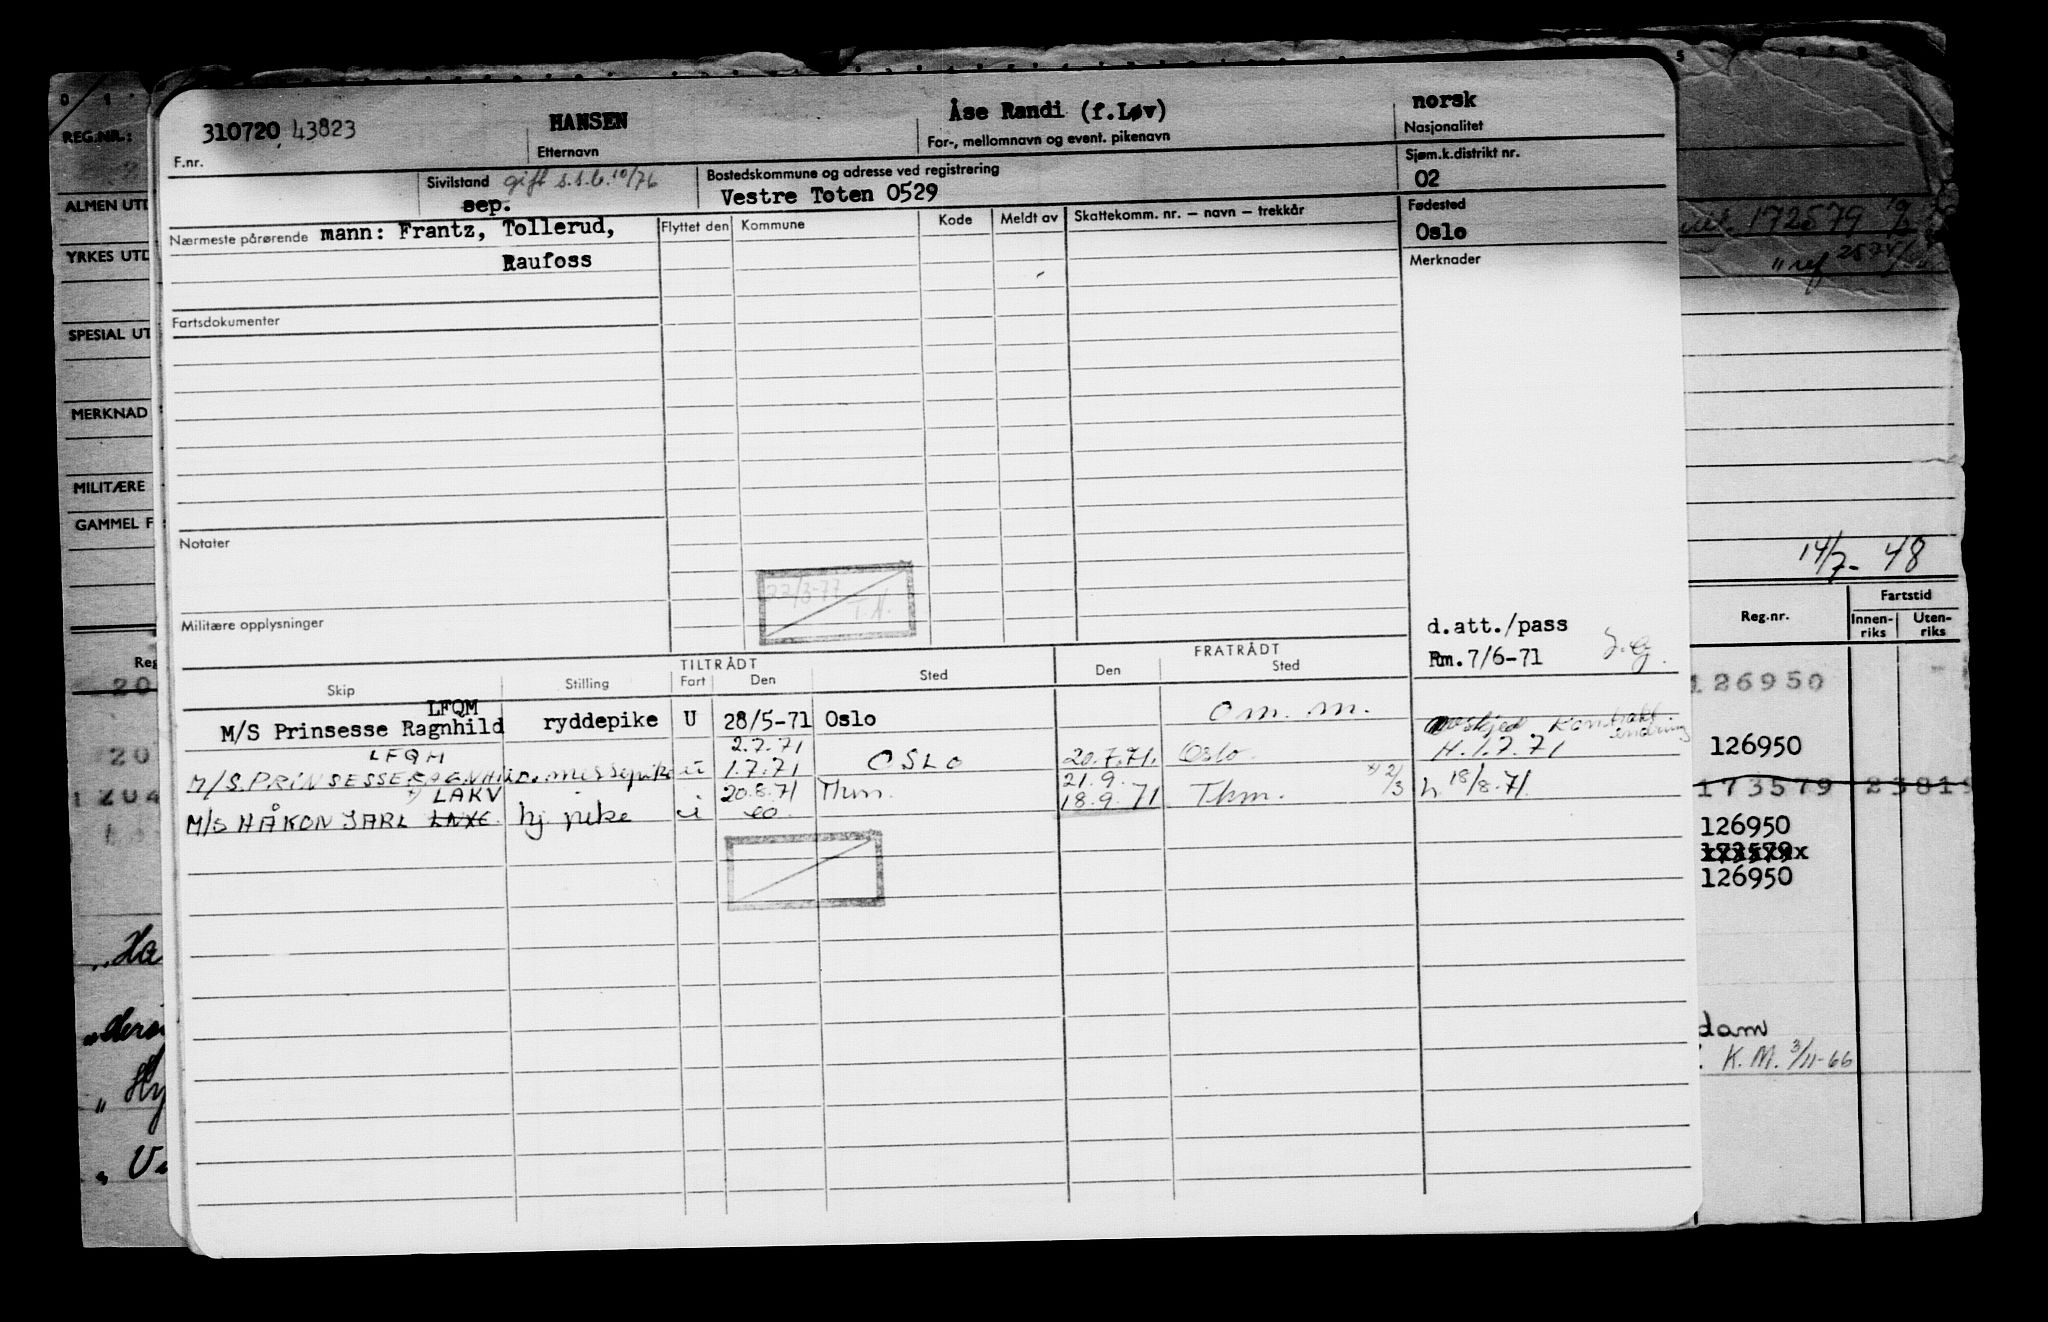 310720 43823
HANSEN
Åse Randi (f.Løv)
norsk
F.nr.
Etternavn
For-, mellomnavn og event. pikenavn
Nasjonalitet
Sivilstand gift s.s.b. 10/76
sep.
Bostedskommune og adresse ved registrering
Vestre Toten 0529
Sjøm.k.distrikt nr.
02
Nærmeste pårørende mann: Frantz, Tollerud,
Raufoss
Flyttet den
Kommune
Kode
Meldt av
Skattekomm. nr. — navn — trekkår
Fødested
Oslo
Merknader
Fartsdokumenter
Notater
22/3-77
T.H.
Militære opplysninger
d.att./pass
Rm.7/6-71
TILTRÅDT
FRATRÅDT
Skip
Stilling
Fart
Den
Sted
Den
Sted
LFQM
M/S Prinsesse Ragnhild ryddepike U 28/5-71 Oslo Om. m. kontrakt
LFQM 2.7.71
M/S. PRINSESSE RAGNHILD messepike u 1.7.71 OSLO 20.7.71. Oslo H. 1.7.71
LAKV 20.8.71 21.9.
M/S HÅKON JARL LNXE hj pike i 18.9.71 Thm. 2/3 h 18/8.71
REG.NR.:
ALMEN UTD
YRKES UTD
SPESIAL UT
MERKNAD
MILITÆRE
GAMMEL F
Reg
20
20
1 204
172579
ref
14/7- 48
Reg.nr.
Fartstid
Innen-
riks
Uten-
riks
126950
126950
173579 2381
126950
173579
126950
dam
K.M. 3/11-66